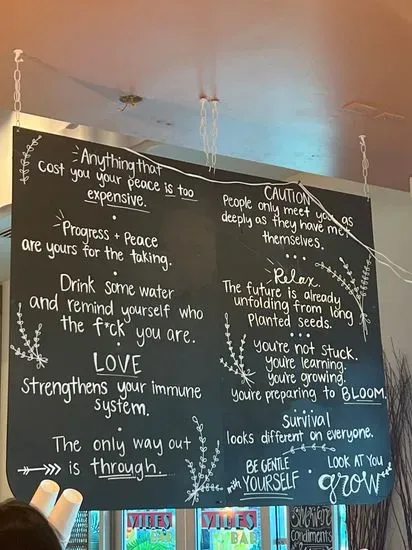 Anything that
cost you your peace is too
expensive.
Progress + Peace
are yours for the taking.
Drink some water
and remind yourself who
the f*ck you are.
LOVE
strengthens your immune
system.
The only way out
is through.
CAUTION
People only meet you as
deeply as they have met
themselves.
Relax.
The future is already
unfolding from long
planted seeds.
you're not stuck.
you're learning.
you're growing.
you're preparing to BLOOM.
Survival
looks different on everyone.
BE GENTLE
with YOURSELF
LOOK AT YOU
grow
VIBES
BAR
VIBES
BAR
condiments